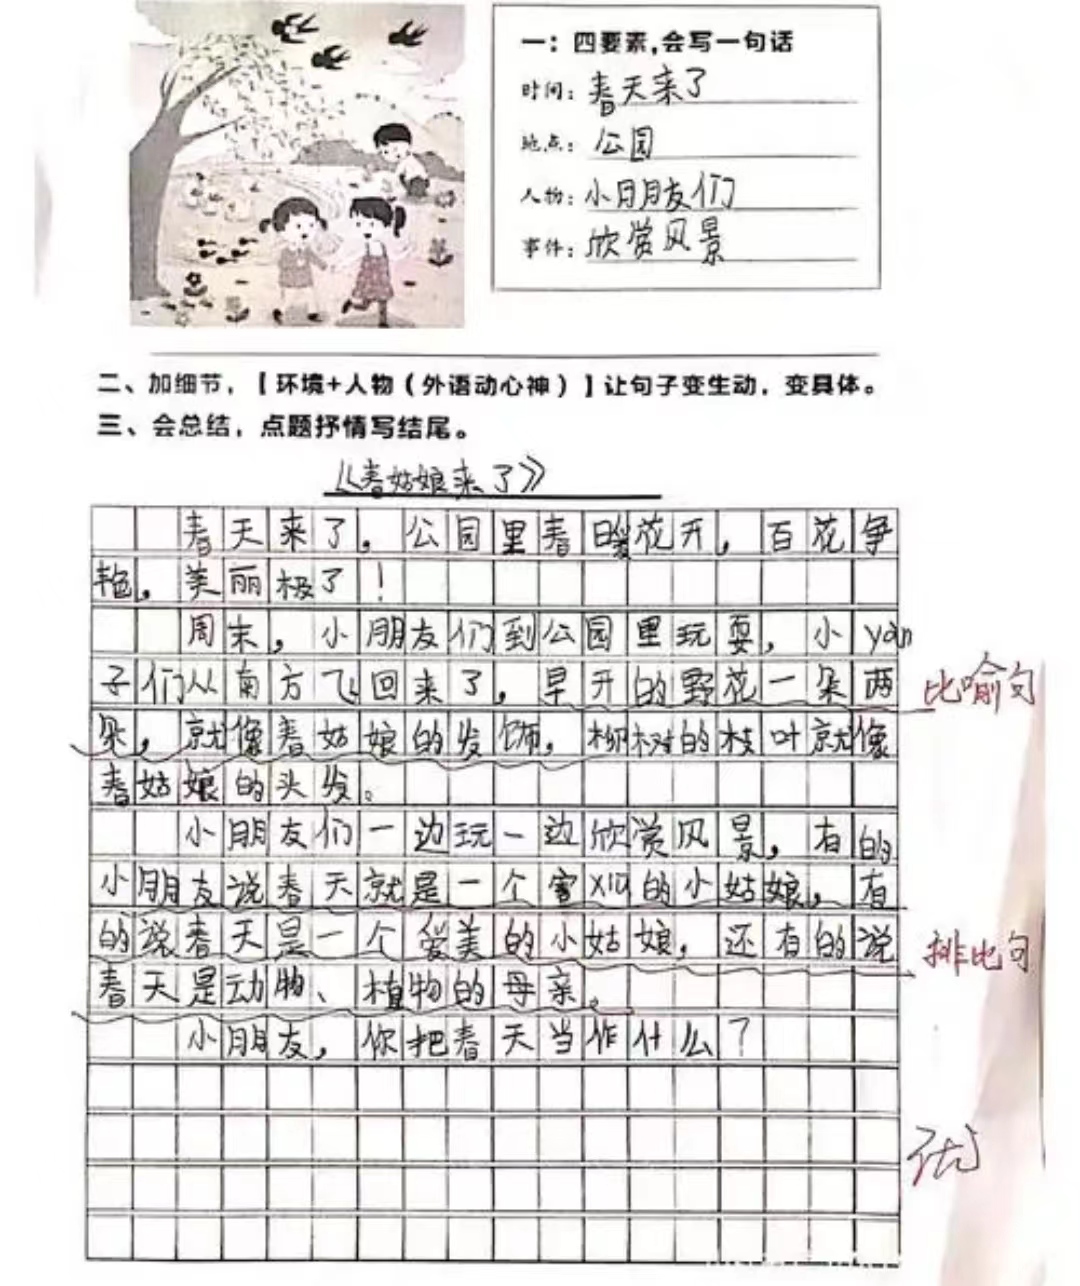 一：四要素,会写一句话
时间：春天来了
地点：公园
人物：小朋友们
事件：欣赏风景
二、加细节，【环境+人物（外语动心神）】让句子变生动，变具体。
三、会总结，点题抒情写结尾。
《春姑娘来了》
春天来了，公园里春暖花开，百花争
艳，美丽极了！
周末，小朋友们到公园里玩耍，小yàn
子们从南方飞回来了，早开的野花一朵两
比喻句
朵，就像春姑娘的发饰，柳树的枝叶就像
春姑娘的头发。
小朋友们一边玩一边欣赏风景，有的
小朋友说春天就是一个害xiū的小姑娘，有
的说春天是一个爱美的小姑娘，还有的说
排比句
春天是动物、植物的母亲。
小朋友，你把春天当作什么？
优